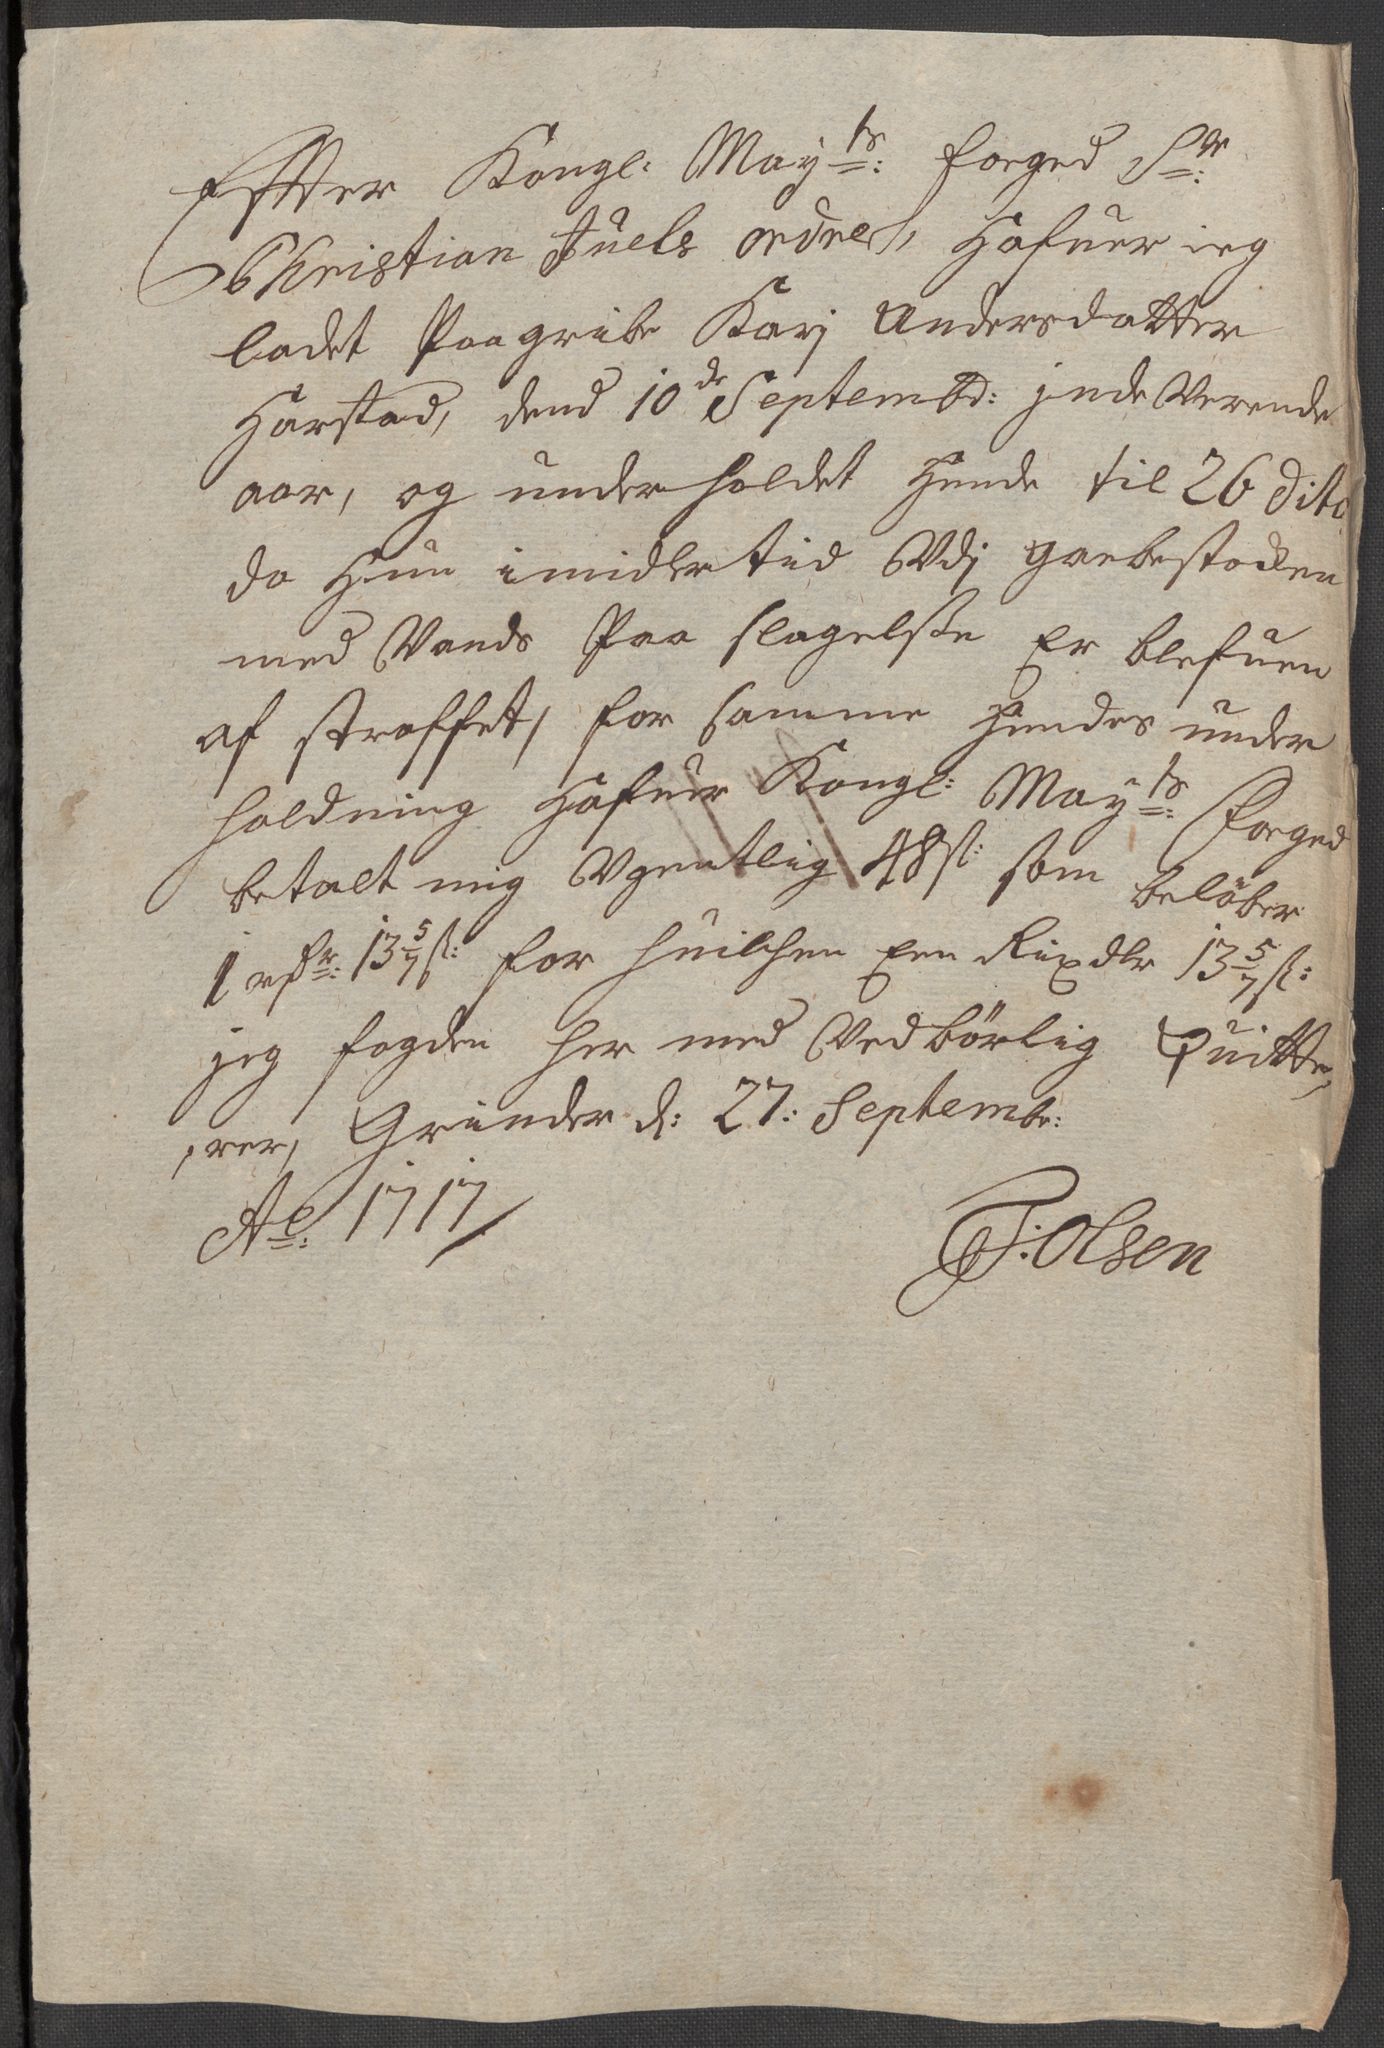 Effter Kongl: May<sup>ts</sup>: foeged S<sup>r</sup>:
Christian Juels ordre, Hafuer ieg
ladet Paagribe Karj Andersdatter
Harstad, dend 10<sup>de</sup> Septembr: jndeVerende
aar, og underholdet Hende til 26 dito
da Hun imidlertid Vdj gabestocken
med Vands Paa slagelse Er blefuen
af straffet, for samme Hendes under
holdning Hafuer Kongl: May<sup>ts</sup>: foeged
betalt mig Vgentlig 48 ß: som belöber
1 rdr: 13 5/7 ß: for huilchen Een Rixdlr 13 5/7 ß:
jeg fogden her med Vedbörlig Quitte,
,rer, Grinder d: 27: Septembr:
A<sup>o</sup>: 1717
T: Olsen